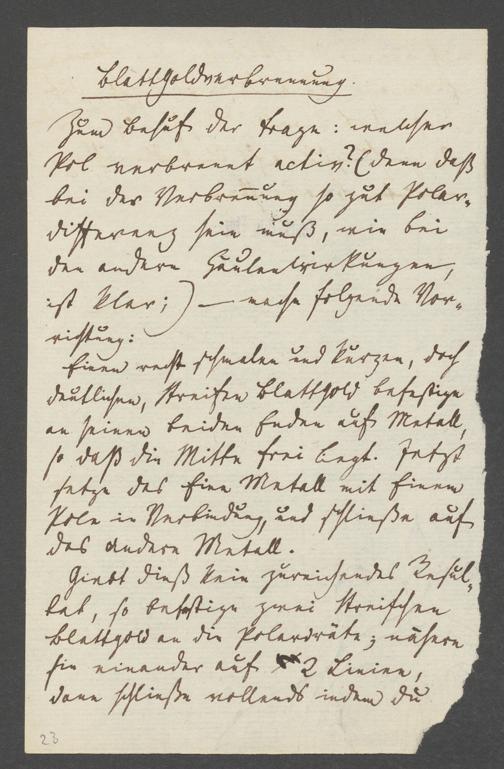 Blattgoldverbrennung.
Zum Behuf der Frage: welcher
Pol verbrennt activ? (denn daß
bei der Verbrennung so gut Polar-
differenz sein muß, wie bei
den andern Säulenwirkungen,
ist klar;) — mache folgende Vor-
richtung:
Einen recht schmalen und kurzen, doch
deutlichen, Streifen Blattgold befestige
an seinen beiden Enden auf Metall,
so daß die Mitte frei liegt. Jetzt
setze das Eine Metall mit Einem
Pole in Verbindung, und schließe auf
das andere Metall.
Giebt dieß kein zureichendes Resul-
tat, so befestige zwei Streifchen
Blattgold an die Polardräte; nähere
sie einander auf 2 Linien,
dann schließe vollends indem du
23